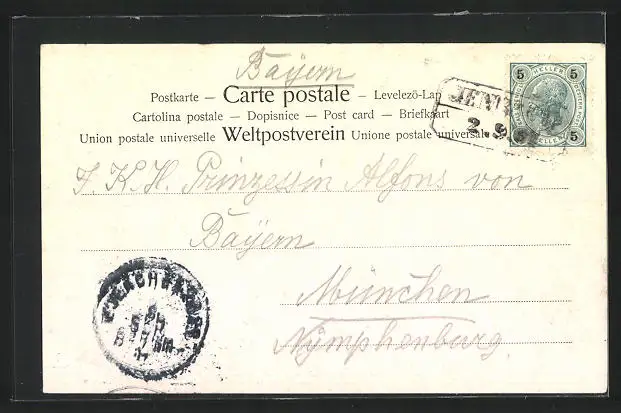 Bayern
Postkarte — Carte postale — Levelező-Lap
Cartolina postale — Dopisnice — Post card — Briefkaart
Union postale universelle Weltpostverein Unione postale universale
5 HELLER 5
5 HELLER 5
2. 9.
J. K. H. Prinzessin Alfons von
Bayern
München
Nymphenburg